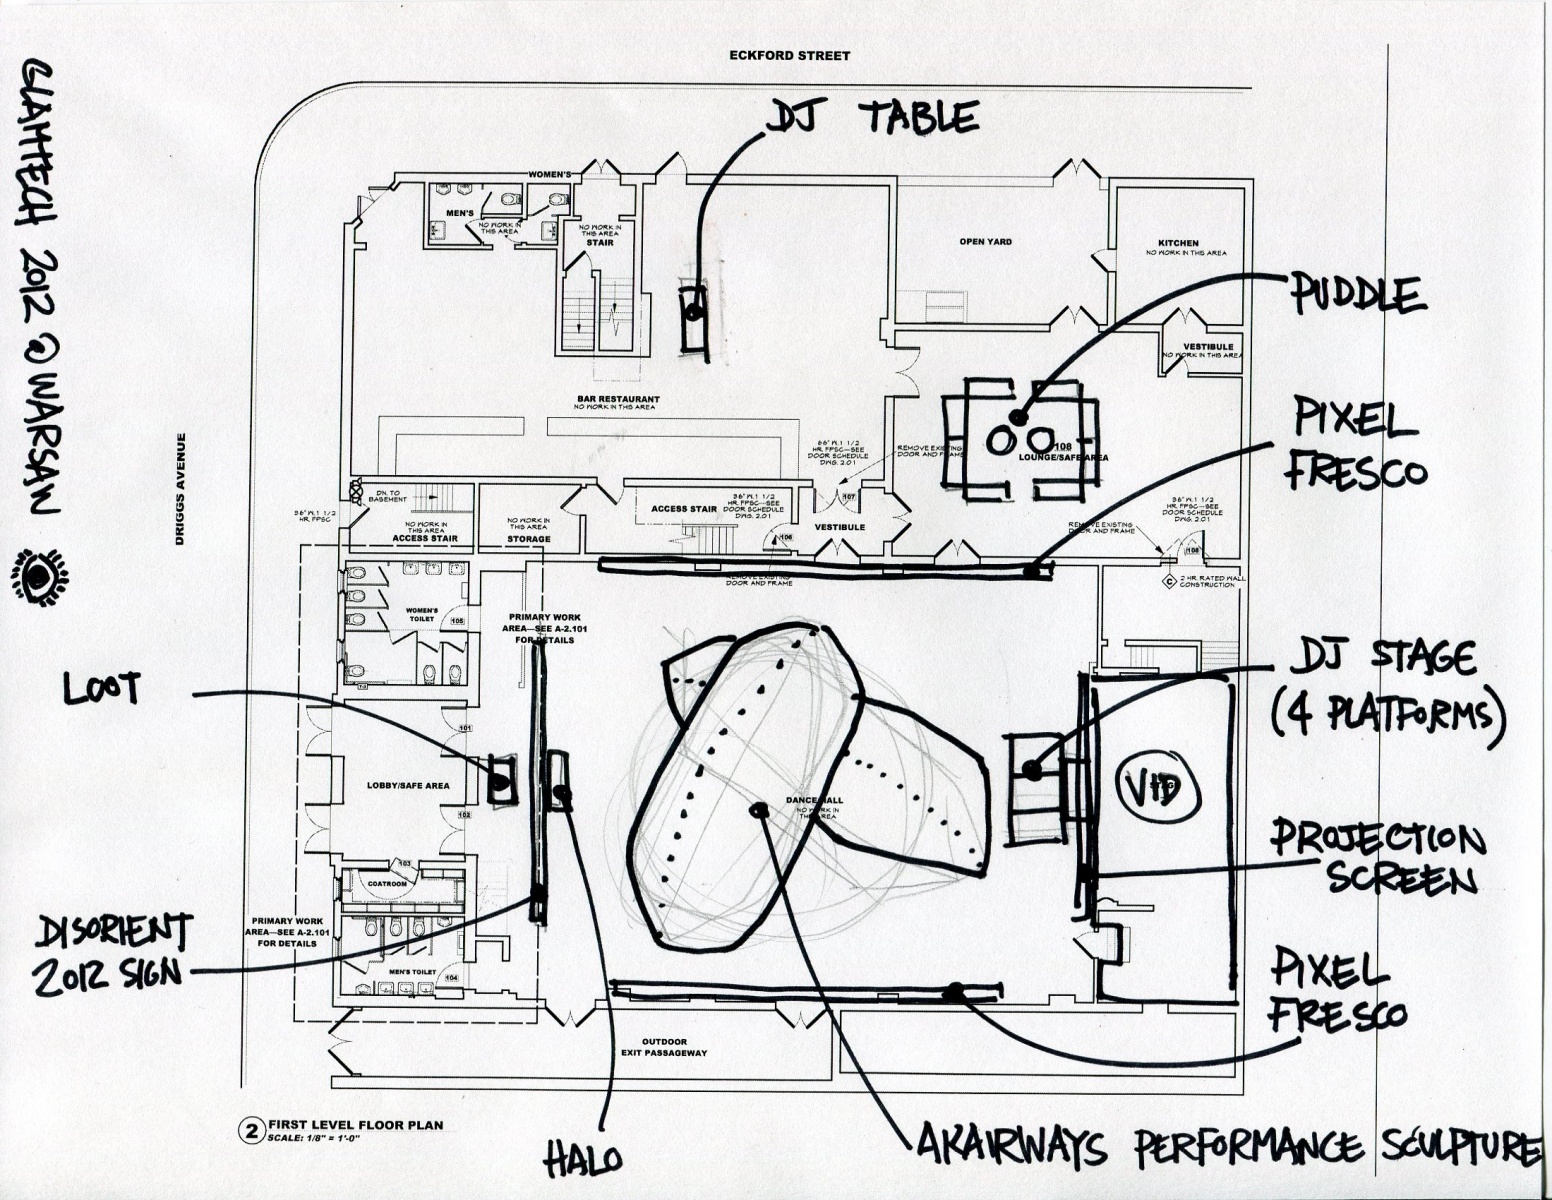 ECKFORD STREET
GLAMTECH 2012 @ WARSAW
DRIGGS AVENUE
DJ TABLE
WOMEN'S
MEN'S
NO WORK IN
THIS AREA
NO WORK IN
THIS AREA
STAIR
OPEN YARD
KITCHEN
NO WORK IN THIS AREA
PUDDLE
VESTIBULE
NO WORK IN THIS AREA
BAR RESTAURANT
NO WORK IN THIS AREA
PIXEL
FRESCO
108
LOUNGE/SAFE AREA
36" W. 1 1/2
HR. FPSC—SEE
DOOR SCHEDULE
DWG. 2.01
REMOVE EXISTING
DOOR AND FRAME
107
VESTIBULE
DN. TO
BASEMENT
36" W. 1 1/2
HR. FPSC
NO WORK IN
THIS AREA
ACCESS STAIR
NO WORK IN
THIS AREA
STORAGE
ACCESS STAIR
36" W. 1 1/2
HR. FPSC—SEE
DOOR SCHEDULE
DWG. 2.01
106
REMOVE EXISTING
DOOR AND FRAME
36" W. 1 1/2
HR. FPSC—SEE
DOOR SCHEDULE
DWG. 2.01
REMOVE EXISTING
DOOR AND FRAME
108
C
2 HR. RATED WALL
CONSTRUCTION
WOMEN'S
TOILET
105
PRIMARY WORK
AREA—SEE A-2.101
FOR DETAILS
LOOT
101
LOBBY/SAFE AREA
102
DANCE HALL
NO WORK IN
THIS AREA
DJ STAGE
(4 PLATFORMS)
VID
PROJECTION
SCREEN
103
COATROOM
PRIMARY WORK
AREA—SEE A-2.101
FOR DETAILS
DISORIENT
2012 SIGN
MEN'S TOILET
104
PIXEL
FRESCO
OUTDOOR
EXIT PASSAGEWAY
2
FIRST LEVEL FLOOR PLAN
SCALE: 1/8" = 1'-0"
HALO
AKAIRWAYS PERFORMANCE SCULPTURE